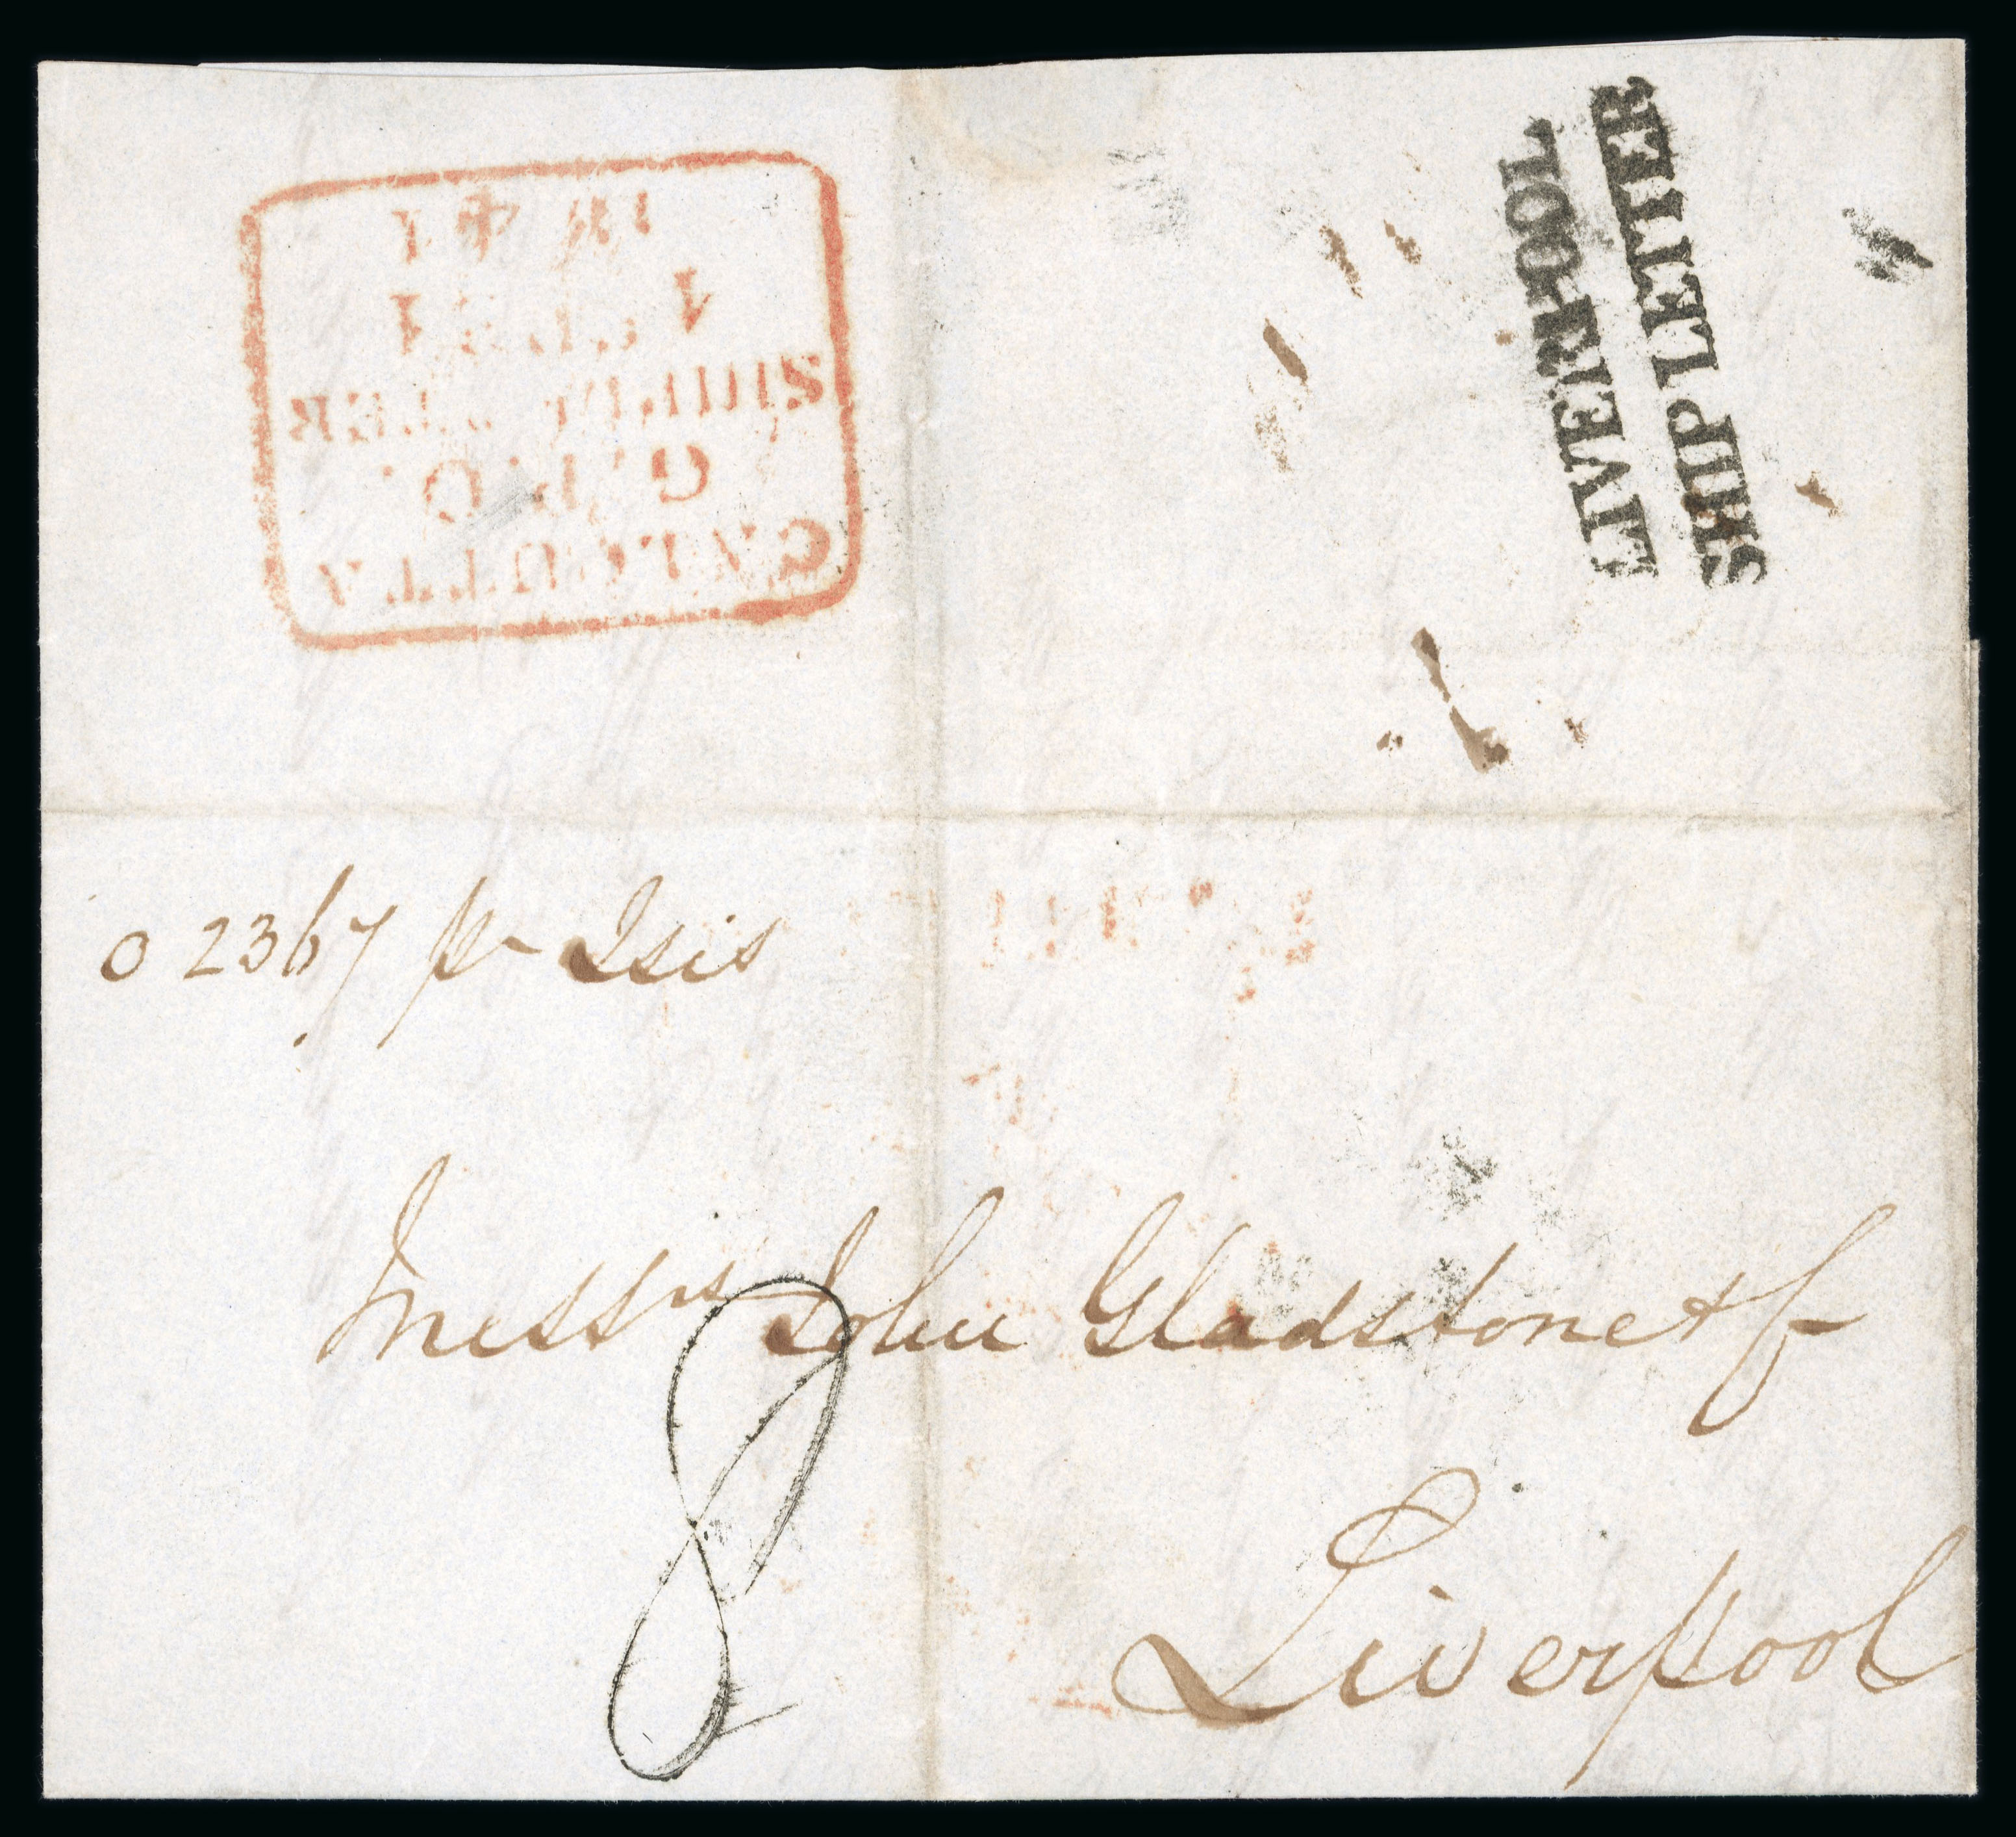 CALCUTTA
G.P.O.
SHIP LETTER
1841
LIVERPOOL
SHIP LETTER
o 2367 pr Isis
Messrs John Gladstone & Co
8
Liverpool